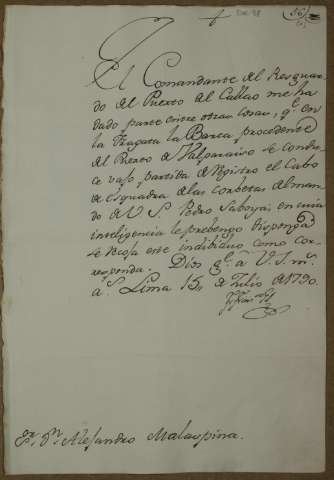 56
El Comandante del Resguar-
do del Puerto del Callao me ha
dado parte entre otras cosas, qe. en
la Fragata la Barca, procedente
del Puerto de Valparaiso se condu-
ce vajo partida de Registro el Cabo
de Esquadra de las corbetas del man-
do de V. S. Pedro Saboya; en cuia
inteligencia le prebengo disponga
se recoja este individuo como cor-
responda. Dios ge. á V. S. ms.
as. Lima 15 de Julio de 1790.
Sr. Dn. Alejandro Malaspina.